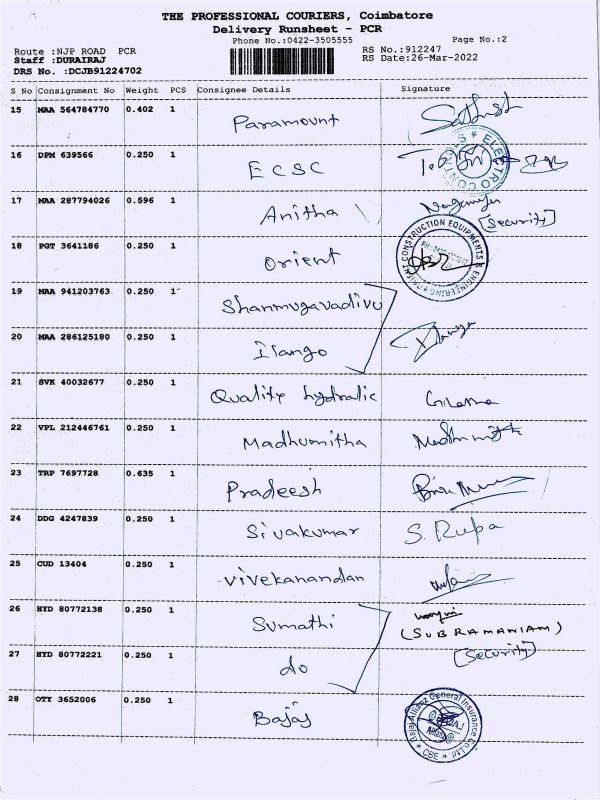 THE PROFESSIONAL COURIERS, Coimbatore
Delivery Runsheet - PCR
Phone No.:0422-3505555
Page No.:2
Route :NJP ROAD PCR
RS No.:912247
Staff :DURAIRAJ
RS Date:26-Mar-2022
DRS No. :DCJB91224702
S No Consignment No Weight PCS Consignee Details Signature
15 MAA 564784770 0.402 1 Paramount Sathish
16 DPM 639566 0.250 1 ECSC
ELECTRO CONTROLS
17 MAA 287794026 0.596 1 Anitha
[Security]
18 PGT 3641186 0.250 1 Orient
ORIENT CONSTRUCTION EQUIPMENTS & ENGINEERING
19 MAA 941203763 0.250 1 Shanmugavadivu
20 MAA 286125180 0.250 1 Ilango
21 SVK 40032677 0.250 1 Quality hydralic
22 VPL 212446761 0.250 1 Madhumitha
23 TRP 7697728 0.635 1 Pradeesh
24 DDG 4247839 0.250 1 Sivakumar S. Rupa
25 CUD 13404 0.250 1 Vivekanandan
26 HYD 80772138 0.250 1 Sumathi
(SUBRAMANIAM)
27 HYD 80772221 0.250 1 do [Security]
28 OTY 3652006 0.250 1 Bajaj
Bajaj Allianz General Insurance Co Ltd
CBE